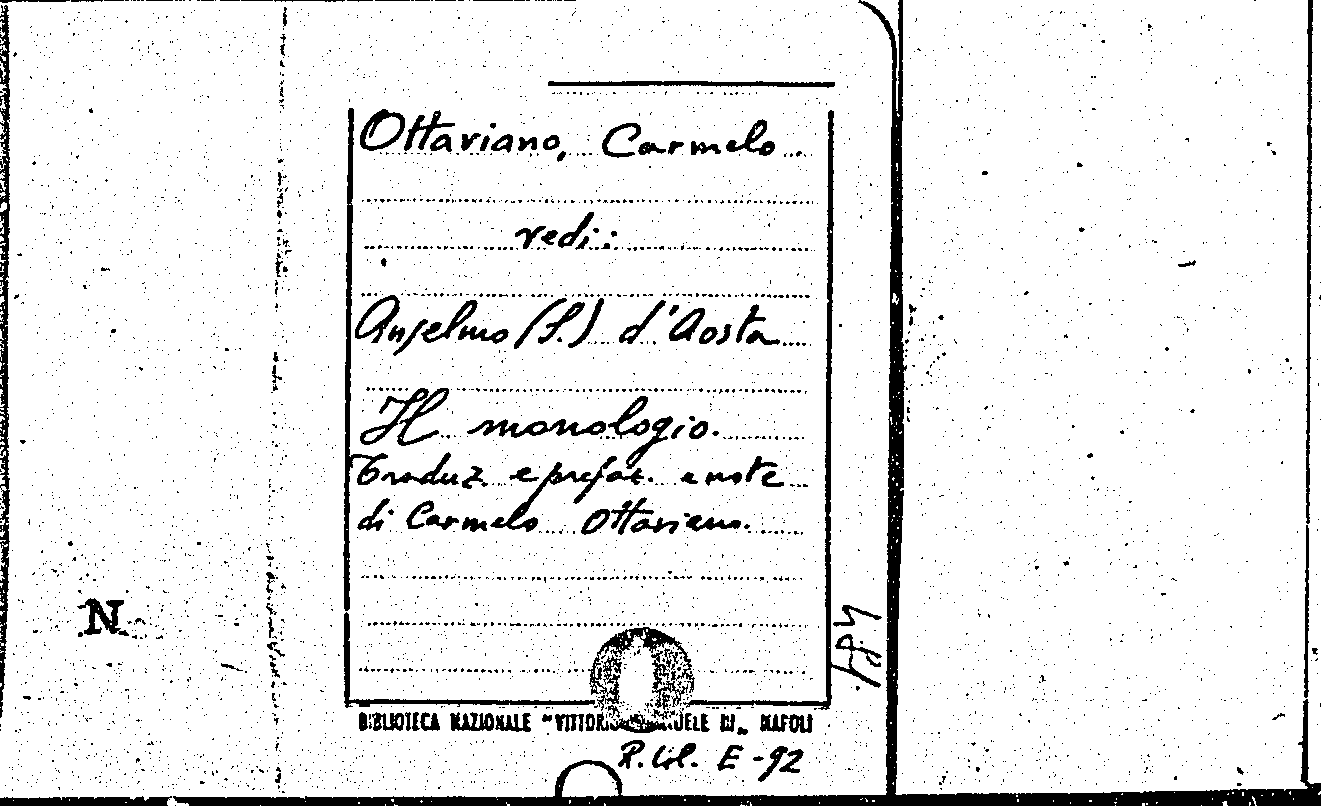 Ottaviano, Carmelo.
vedi:
Anselmo (S.) d'Aosta
Il monologio.
Traduz. e prefaz. e note
di Carmelo Ottaviano.
N
BIBLIOTECA NAZIONALE "VITTORIO EMANUELE III„ NAPOLI
R. Col. E-92